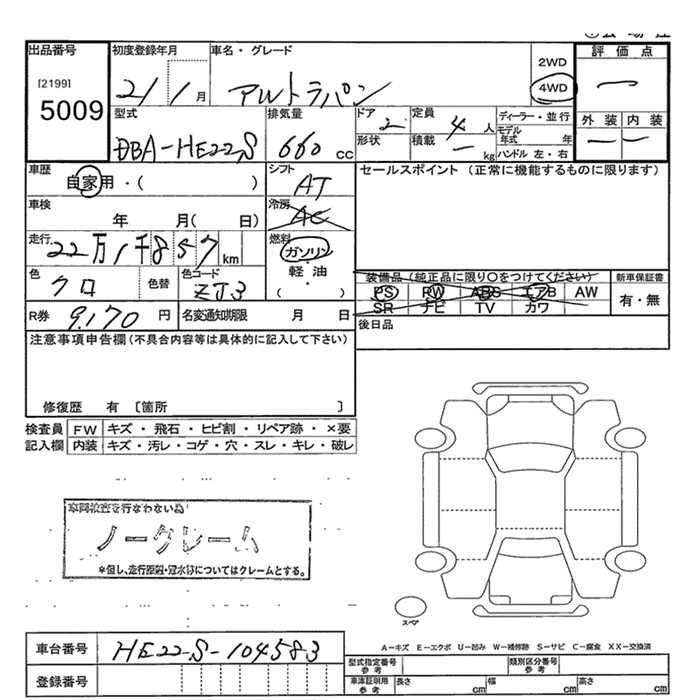 出品番号 初度登録年月 車名・グレード 評価点
[2199] 5009
21/1月 アルトラパン 2WD 4WD ー
型式 排気量 ドア 定員 ディーラー・並行 外装 内装
DBA-HE22S 660 cc 2 4人 モデル年式 年 ー ー
形状 積載 ー kg ハンドル 左・右
車歴 シフト セールスポイント (正常に機能するものに限ります)
自家用・( ) AT
車検 冷房
年 月( 日) AC
走行 燃料
22万1千857km ガソリン
色 色替 色コード 軽油 装備品(純正品に限り〇をつけてください) 新車保証書
クロ ZJ3 ( ) PS PW ABS エアB AW 有・無
SR ナビ TV カワ
R券 9,170円 名変通知期限 月 日 後日品
注意事項申告欄(不具合内容等は具体的に記入して下さい)
修復歴 有 〔箇所 〕
検査員 FW キズ・飛石・ヒビ割・リペア跡・×要
記入欄 内装 キズ・汚レ・コゲ・穴・スレ・キレ・破レ
車両検査を行なわない為
ノークレーム
*但し、走行距離・冠水跡についてはクレームとする。
スペア
車台番号 HE22S-104583 A-キズ E-エクボ U-凹み W-補修跡 S-サビ C-腐食 XX-交換済
登録番号 型式指定番号参考 類別区分番号参考
車庫証明用参考 長さ cm 幅 cm 高さ cm